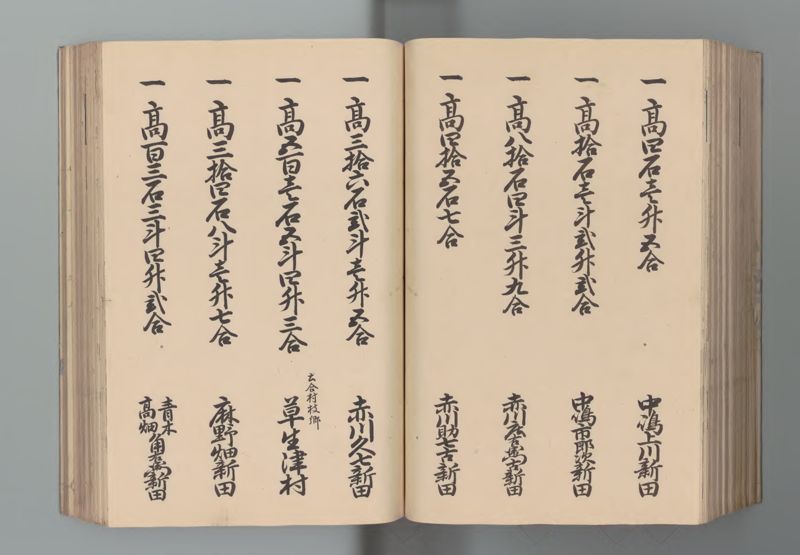 一 高四石壱升五合
中嶋上川新田
一 高拾石壱斗弐升弐合
中嶋市郎次新田
一 高八拾石四斗三升九合
赤川 新田
一 高四拾五石七合
赤川助七古新田
一 高三拾六石弐斗壱升五合
赤川久七新田
一 高五百壱石五斗四升三合
古合村枝郷
草生津村
一 高三拾四石八斗壱升七合
麻野畑新田
一 高百三石三斗四升弐合
青木
高畑 角右衛門新田